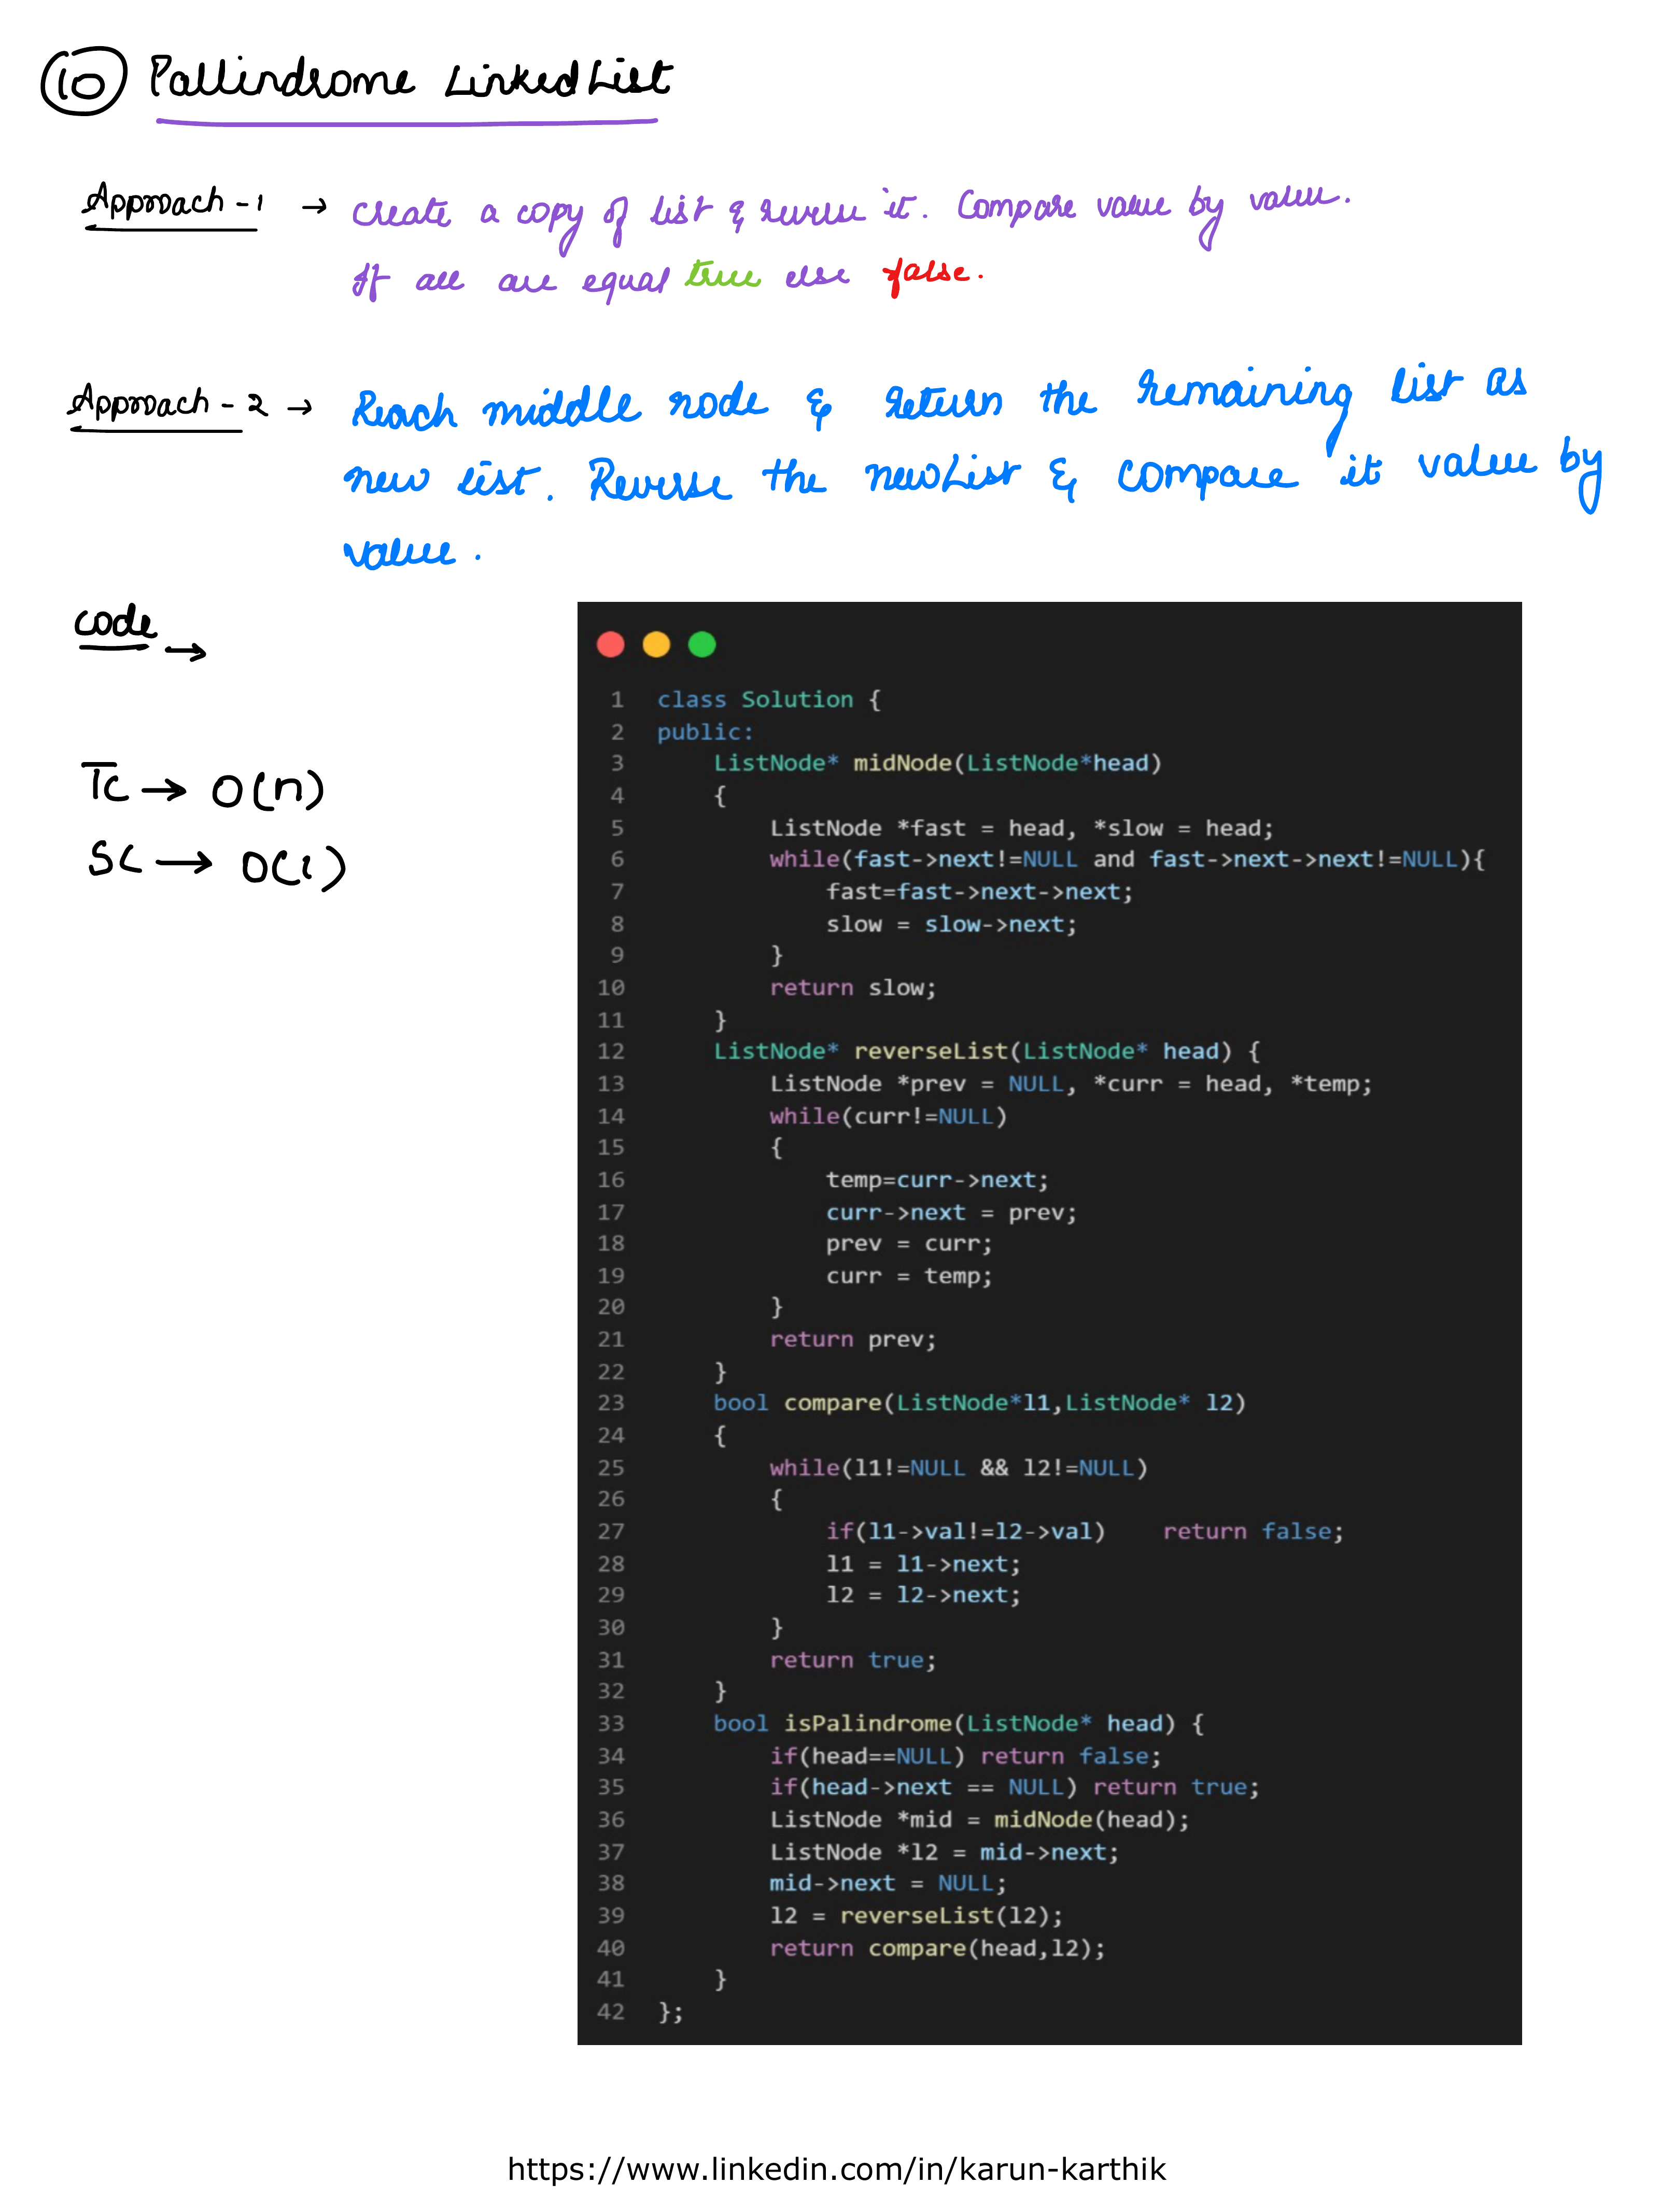 10 Pallindrome LinkedList
Approach-1 → create a copy of list & reverse it. Compare value by value.
If all are equal true else false.
Approach-2 → Reach middle node & return the remaining list as
new list. Reverse the newList & compare it value by
value.
code →
TC → O(n)
SC → O(1)
1 class Solution {
2 public:
3 ListNode* midNode(ListNode*head)
4 {
5 ListNode *fast = head, *slow = head;
6 while(fast->next!=NULL and fast->next->next!=NULL){
7 fast=fast->next->next;
8 slow = slow->next;
9 }
10 return slow;
11 }
12 ListNode* reverseList(ListNode* head) {
13 ListNode *prev = NULL, *curr = head, *temp;
14 while(curr!=NULL)
15 {
16 temp=curr->next;
17 curr->next = prev;
18 prev = curr;
19 curr = temp;
20 }
21 return prev;
22 }
23 bool compare(ListNode*l1,ListNode* l2)
24 {
25 while(l1!=NULL && l2!=NULL)
26 {
27 if(l1->val!=l2->val) return false;
28 l1 = l1->next;
29 l2 = l2->next;
30 }
31 return true;
32 }
33 bool isPalindrome(ListNode* head) {
34 if(head==NULL) return false;
35 if(head->next == NULL) return true;
36 ListNode *mid = midNode(head);
37 ListNode *l2 = mid->next;
38 mid->next = NULL;
39 l2 = reverseList(l2);
40 return compare(head,l2);
41 }
42 };
https://www.linkedin.com/in/karun-karthik